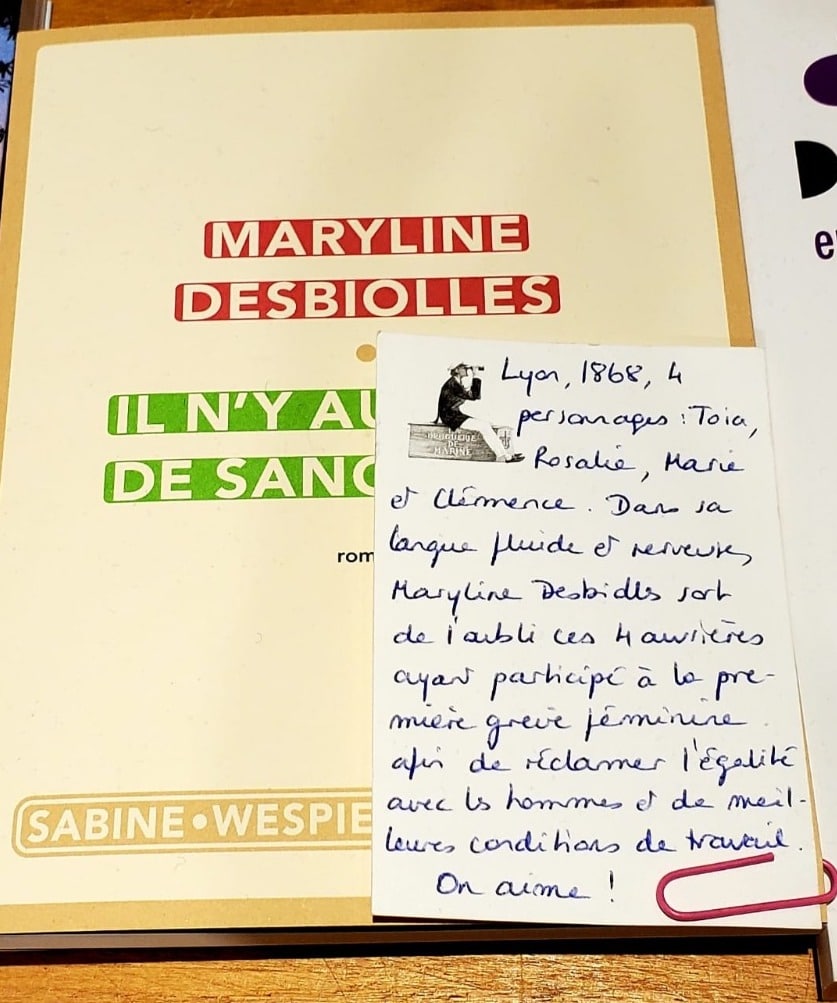 MARYLINE
DESBIOLLES
IL N'Y AU
DE SANG
rom
SABINE • WESPIE
DROGUERIE
DE
MARINE
Lyon, 1868, 4
personnages : Toia,
Rosalie, Marie
et Clémence. Dans sa
langue fluide et nerveuse,
Maryline Desbiolles sort
de l'oubli ces 4 ouvrières
ayant participé à la pre-
mière grève féminine
afin de réclamer l'égalité
avec les hommes et de meil-
leures conditions de travail.
On aime !